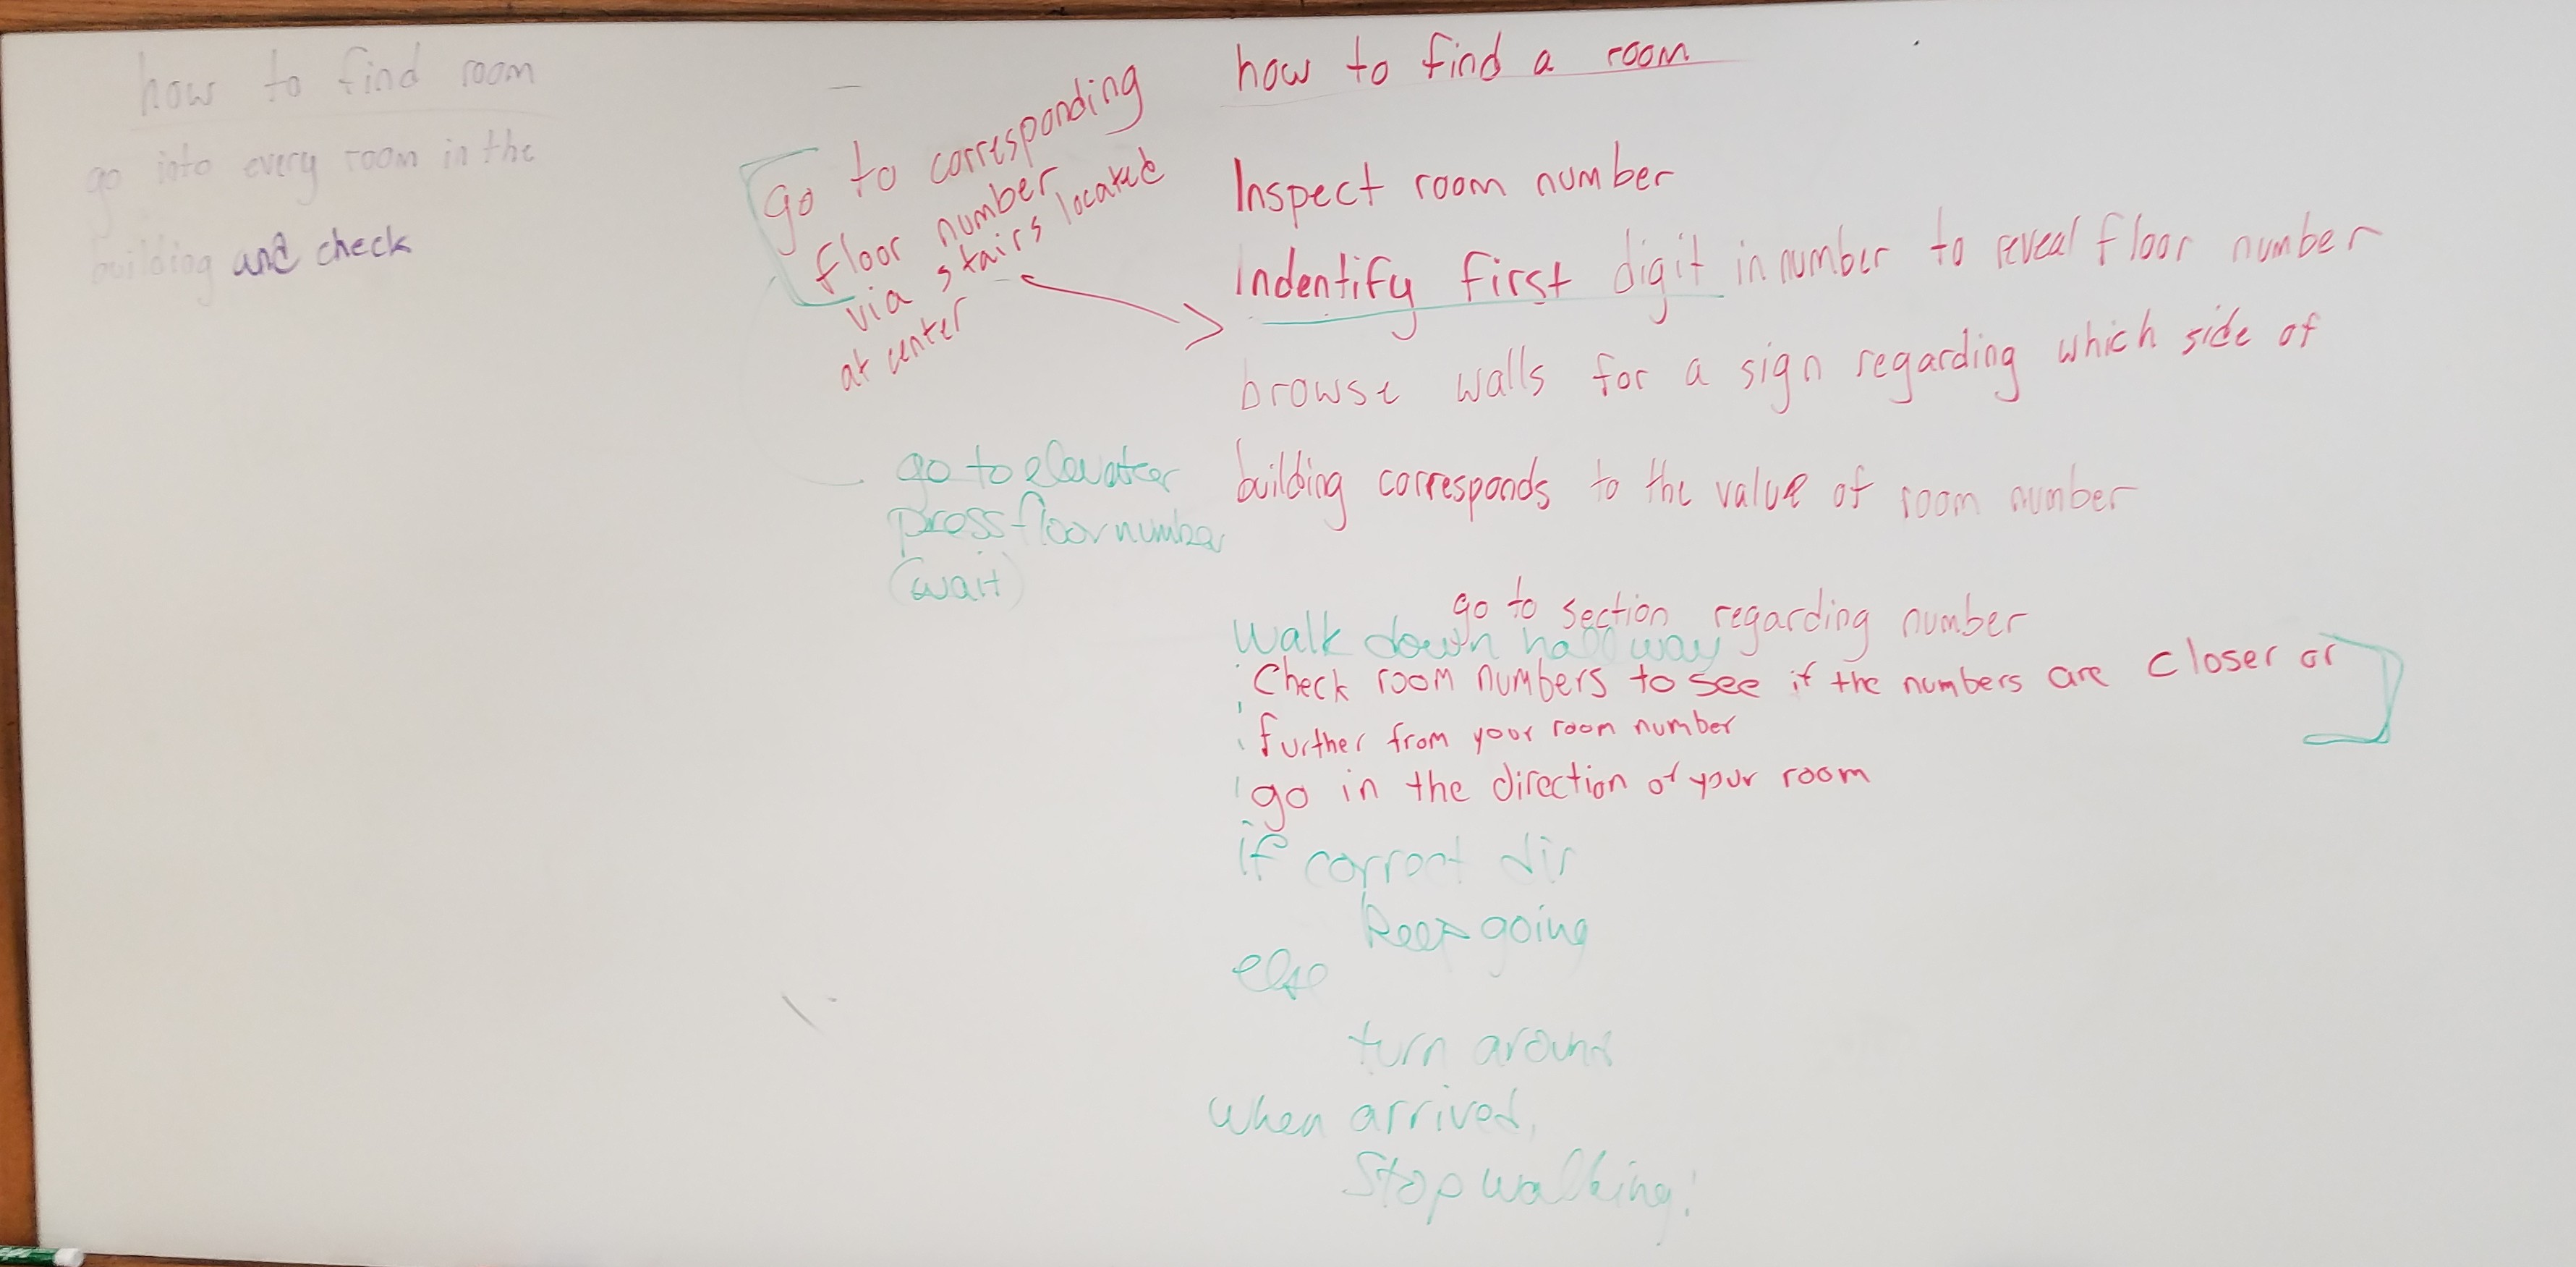 how to find room
go into every room in the
building and check
go to corresponding
floor number
via stairs located
at center
go to elevator
press floor number
(wait)
how to find a room
Inspect room number
Indentify first digit in number to reveal floor number
browse walls for a sign regarding which side of
building corresponds to the value of room number
go to section regarding number
Walk down hallway
Check room numbers to see if the numbers are closer or
further from your room number
go in the direction of your room
if correct dir
keep going
else
turn around
When arrived,
Stop walking!